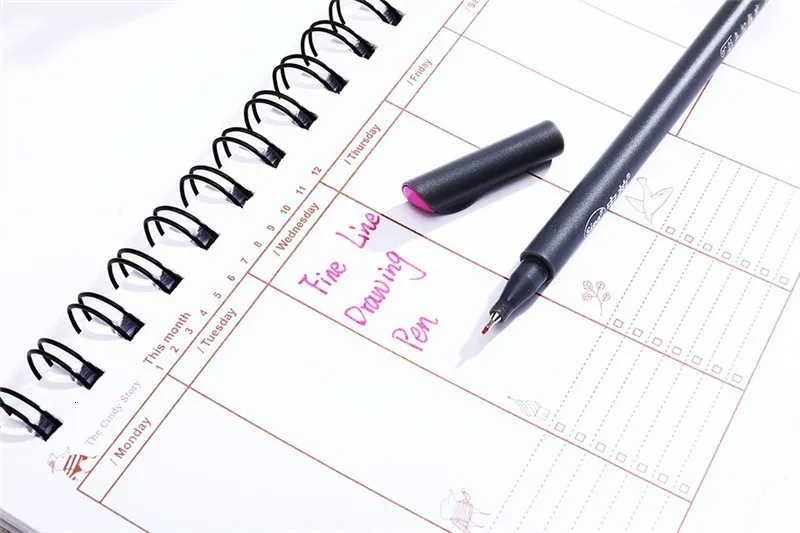 The Cindy Story
This month
1 2 3 4 5 6 7 8 9 10 11 12
/ Monday
/ Tuesday
/ Wednesday
/ Thursday
/ Friday
/ Sa
Fine Line
Drawing
Pen